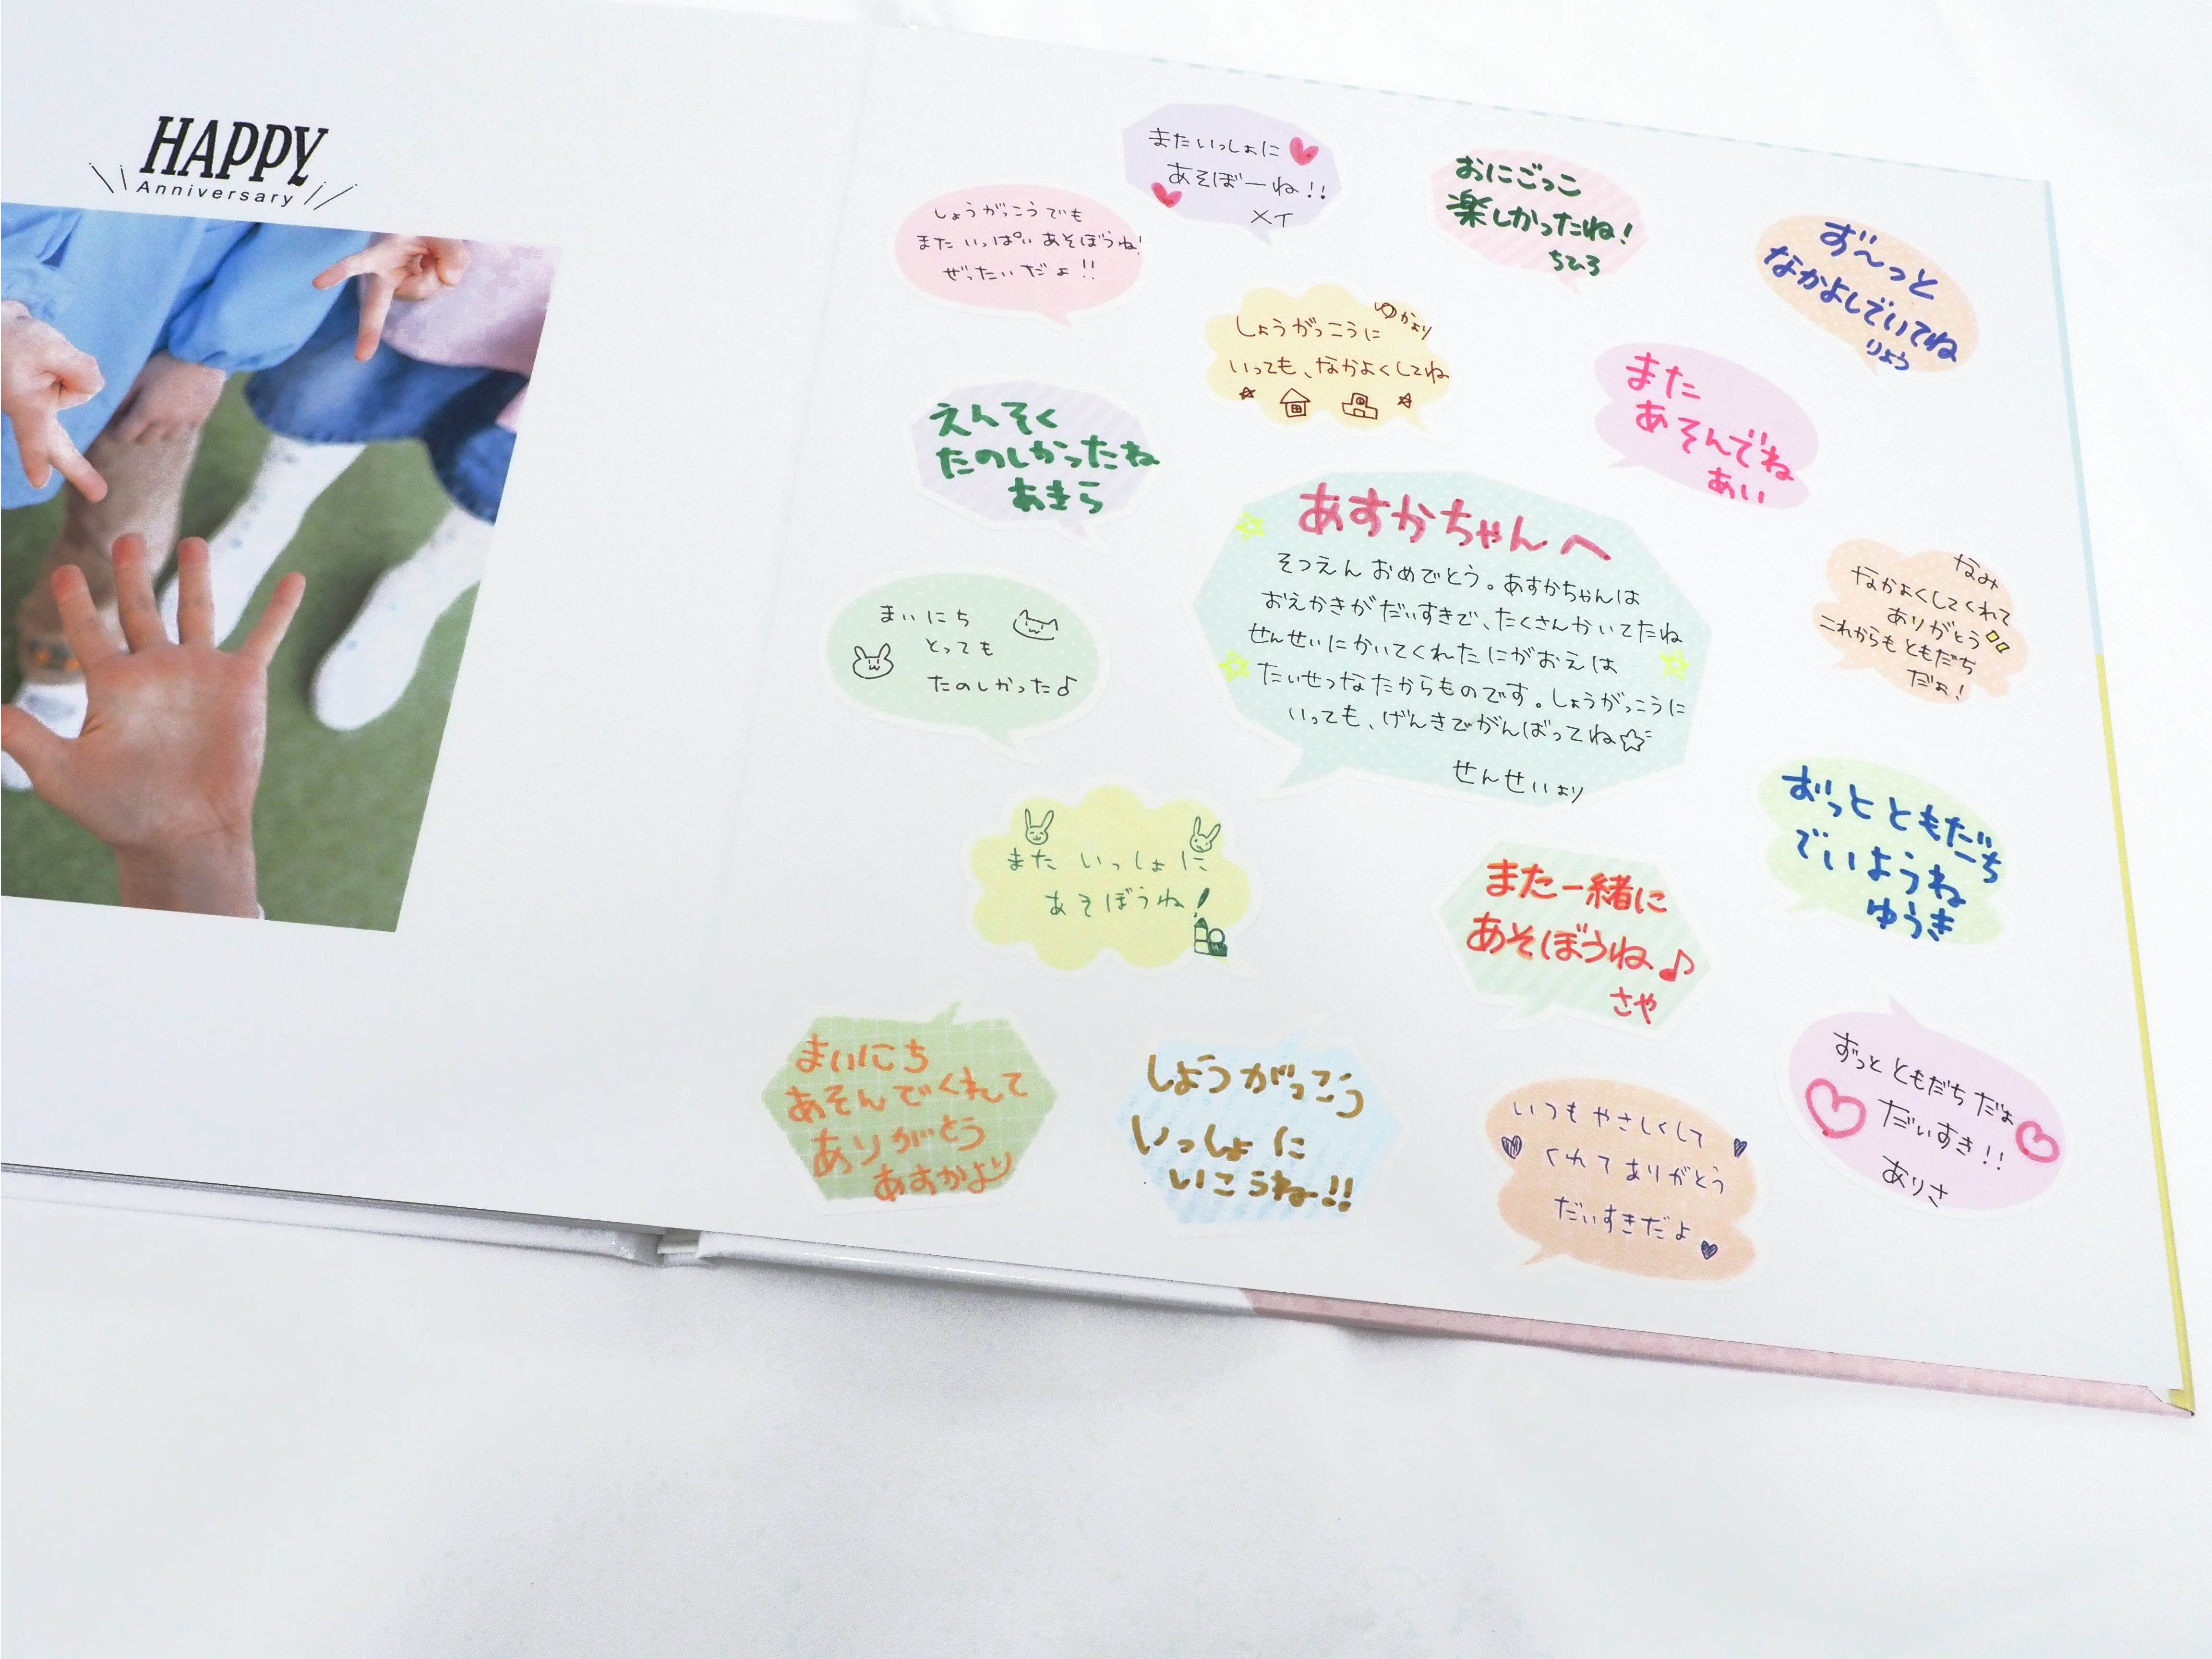 HAPPY
Anniversary
またいっしょに
あそぼーね!!
メイ
おにごっこ
楽しかったね!
ちひろ
しょうがっこうでも
また いっぱい あそぼうね!
ぜったいだよ!!
ず〜っと
なかよしでいてね
りょう
ゆかより
しょうがっこうに
いっても、なかよくしてね
また
あそんでね
あい
えんそく
たのしかったね
あきら
あすかちゃんへ
そつえん おめでとう。あすかちゃんは
おえかきがだいすきで、たくさんかいてたね
せんせいにかいてくれたにがおえは
たいせつなたからものです。しょうがっこうに
いっても、げんきでがんばってね☆
せんせいより
なみ
なかよくしてくれて
ありがとう
これからもともだち
だよ!
まいにち
とっても
たのしかった♪
ずっと ともだち
でいようね
ゆうき
また いっしょに
あそぼうね!
また一緒に
あそぼうね♪
さや
まいにち
あそんでくれて
ありがとう
あすかより
しょうがっこう
いっしょに
いこうね!!
いつもやさしくして
くれてありがとう
だいすきだよ
ずっと ともだち だよ
だいすき!!
ありさ